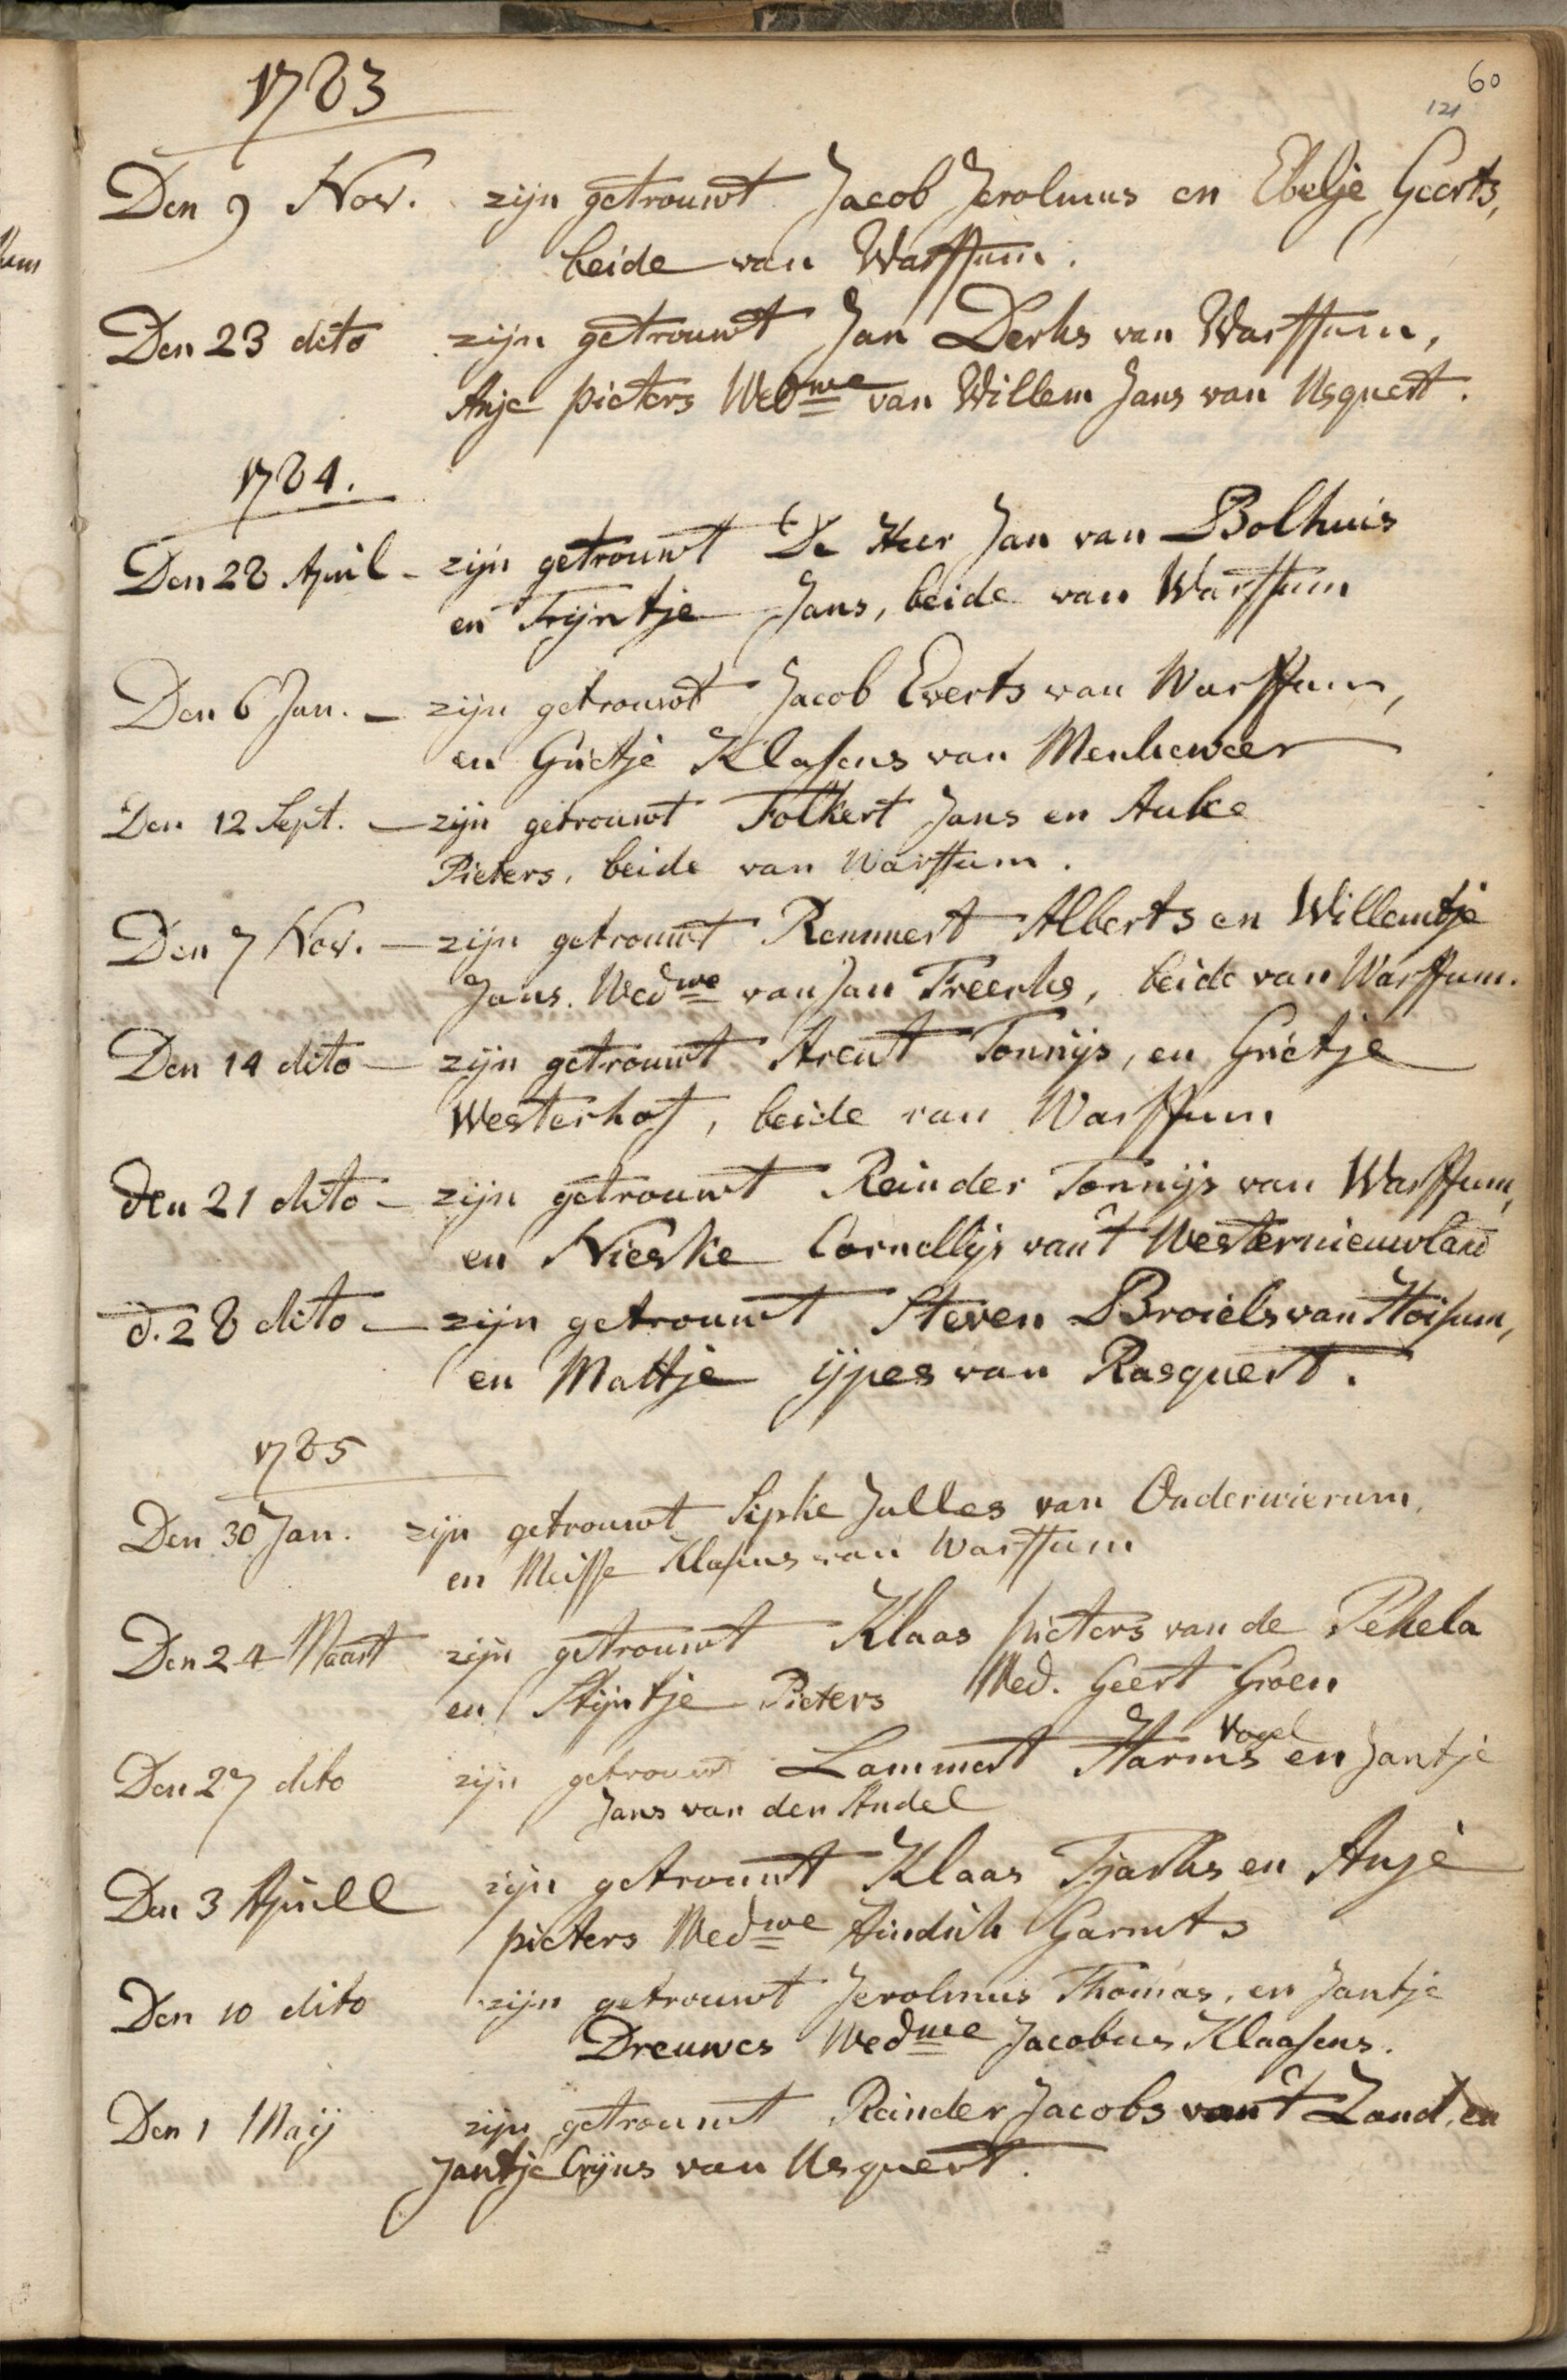 60
121
1783
Den 9 Nov. zijn getrouwt Jacob Jerolmus en Ebelje Geerts,
beide van Warffum.
Den 23 dito zijn getrouwt Jan Derks van Warffum,
Anje pieters Wedwe van Willem Jans van Usquert.
1784.
Den 28 April - zijn getrouwt De Heer Jan van Bolhuis
en Trijntje Jans, beide van Warffum
Den 6 Jun. - zijn getrouwt Jacob Everts van Warffum,
en Grietje Klasens van Menkeweer
Den 12 Sept. - zijn getrouwt Folkert Jans en Auke
Pieters, beide van Warffum.
Den 7 Nov. - zijn getrouwt Remmert Alberts en Willemtje
Jans. Wedwe van Jan Freerks, beide van Warffum.
Den 14 dito - zijn getrouwt Arent Tonnijs, en Grietje
Westerhof, beide van Warffum
den 21 dito - zijn getrouwt Reinder Tonnijs van Warffum,
en Nieske Cornellijs van't Westernieuwland
d. 28 dito - zijn getrouwt Steven Broiels van Hoisum,
en Mattje ijpes van Rasquert.
1785
Den 30 Jan. zijn getrouwt Sipke Jalles van Onderwierum,
en Meisse Klasens van Warffum
Den 24 Maart zijn getrouwt Klaas pieters van de Pekela
en Stijntje Pieters Wed. Geert Groen
Vogel
Den 27 dito zijn getrouwt Lammert Harms en Jantje
Jans van den Andel
Den 3 Aprill zijn getrouwt Klaas Tjarks en Anje
pieters Wedwe Hindrik Garmts
Den 10 dito zijn getrouwt Jerolmus Thomas, en Jantje
Dreuwes Wedwe Jacobus Klaasens.
Den 1 Maij zijn getrouwt Reinder Jacobs van't Zand, en
Jantje Crijns van Usquert.